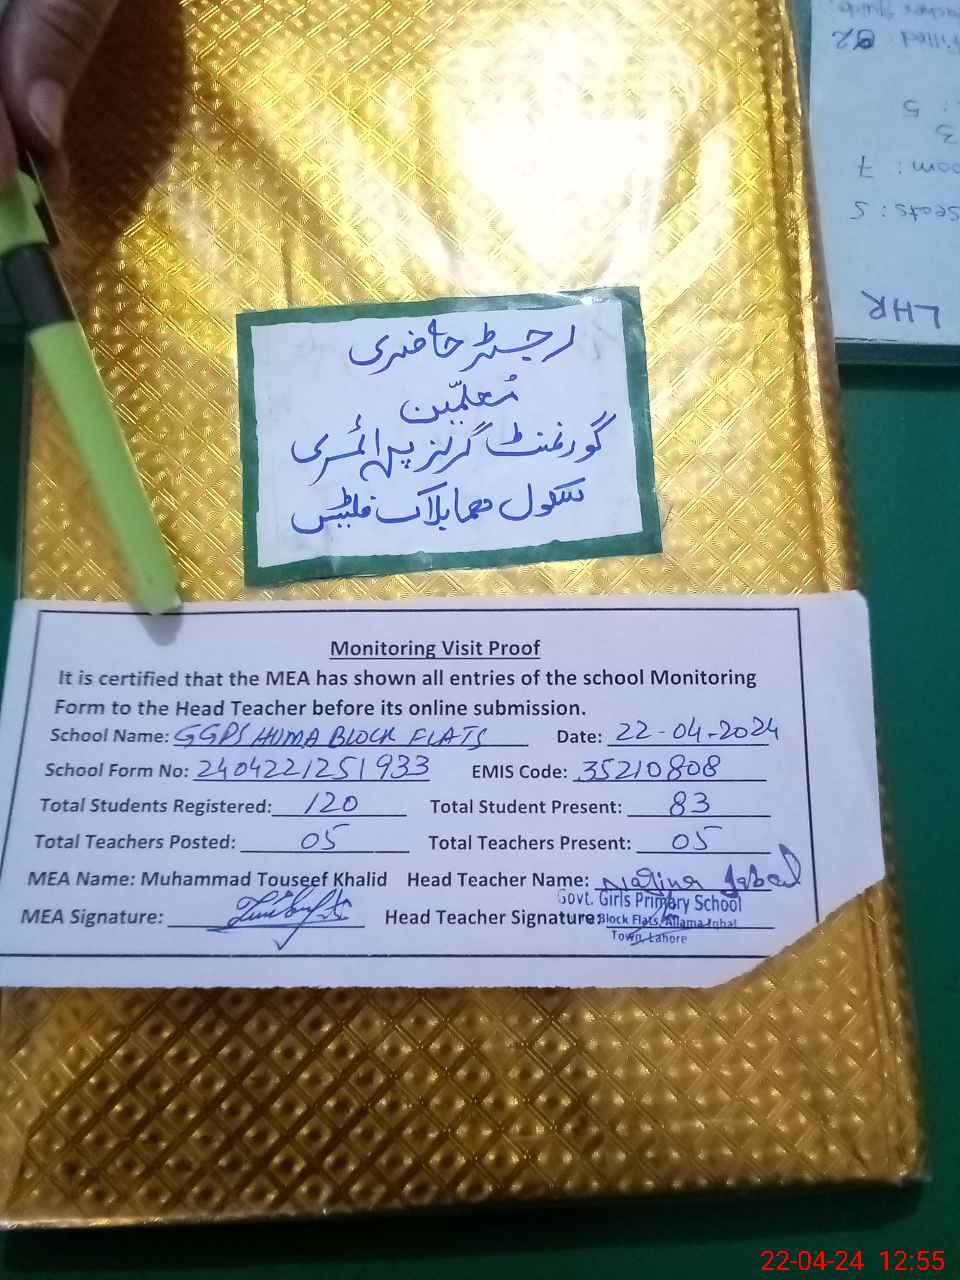 رجسٹر حاضری
مُعلمّین
گورنمنٹ گرلز پرائمری
سکول ھما بلاک فلیٹس
Monitoring Visit Proof
It is certified that the MEA has shown all entries of the school Monitoring
Form to the Head Teacher before its online submission.
School Name: GGPS HUMA BLOCK FLATS Date: 22-04-2024
School Form No: 2404221251933 EMIS Code: 35210808
Total Students Registered: 120 Total Student Present: 83
Total Teachers Posted: 05 Total Teachers Present: 05
MEA Name: Muhammad Touseef Khalid Head Teacher Name: Iqbal
Govt. Girls Primary School
MEA Signature: Head Teacher Signature: Block Flats, Allama Iqbal
Town, Lahore
: 5
3
oom: 7
Seats: 5
LHR
22-04-24 12:55